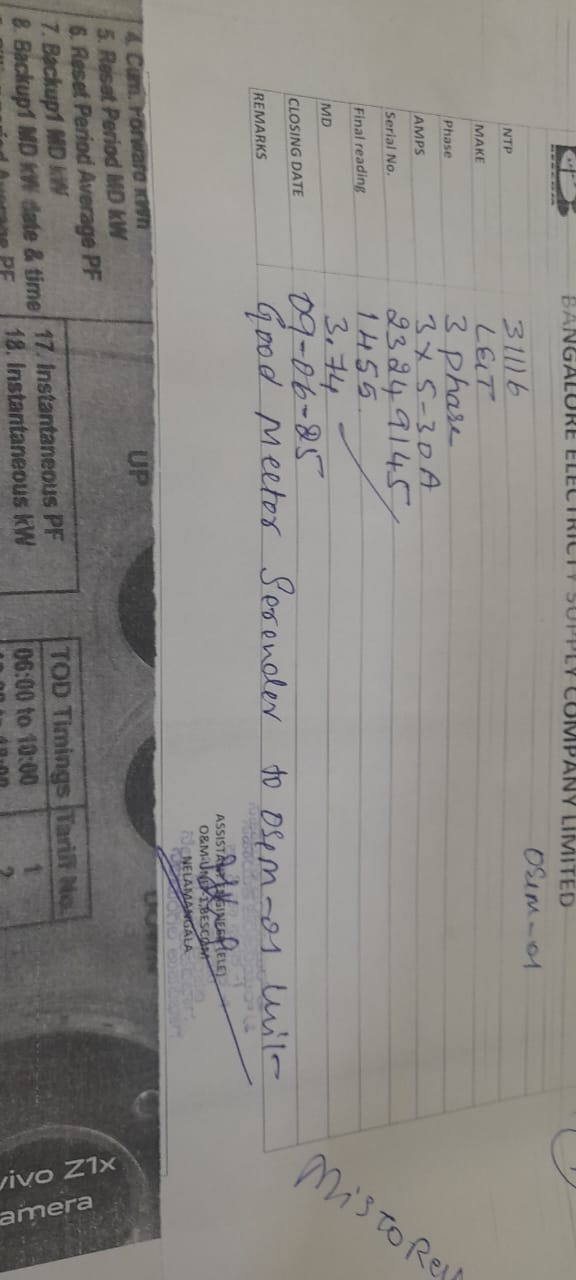 BANGALORE ELECTRICITY SUPPLY COMPANY LIMITED
NTP 31116
MAKE L&T
Phase 3 Phase
AMPS 3 x 5-30A
Serial No. 23249145
Final reading 1455
MD 3.74
CLOSING DATE 09-06-25
REMARKS Good Meetor Serender to O&M-01 Unit-
ASSISTANT ENGINEER (ELE)
O&M UNIT-1, BESCOM
NELAMANGALA
4. Cum. Forward kWh
5. Reset Period MD kW
6. Reset Period Average PF
7. Backup1 MD kW
8. Backup1 MD kW date & time
17. Instantaneous PF
18. Instantaneous kW
UP
DOWN
TOD Timings Tariff No.
06:00 to 10:00 1
2
vivo Z1x